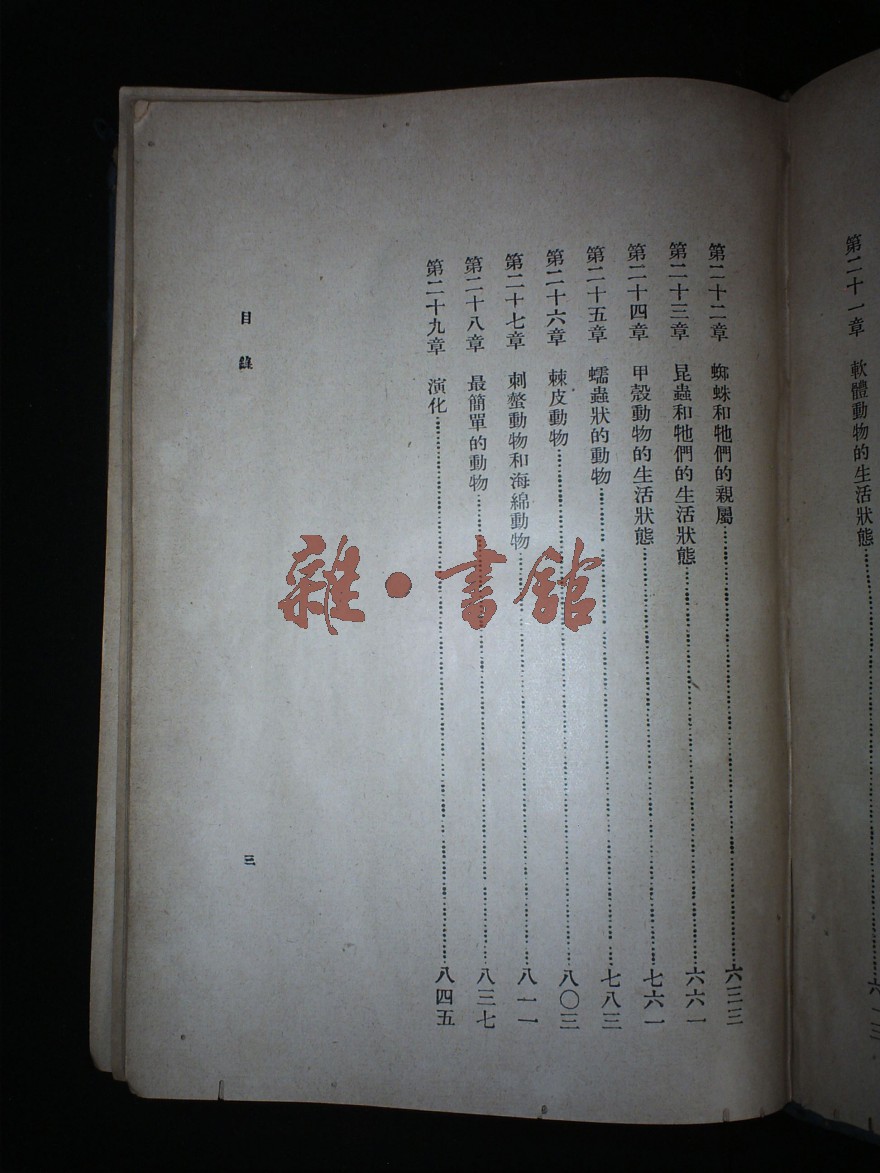 第二十一章 軟體動物的生活狀態
第二十二章 蜘蛛和牠們的親屬 六三三
第二十三章 昆蟲和牠們的生活狀態 六六一
第二十四章 甲殼動物的生活狀態 七六一
第二十五章 蠕蟲狀的動物 七八三
第二十六章 棘皮動物 八〇三
第二十七章 刺螫動物和海綿動物 八一一
第二十八章 最簡單的動物 八三七
第二十九章 演化 八四五
目錄
三
雜·書館